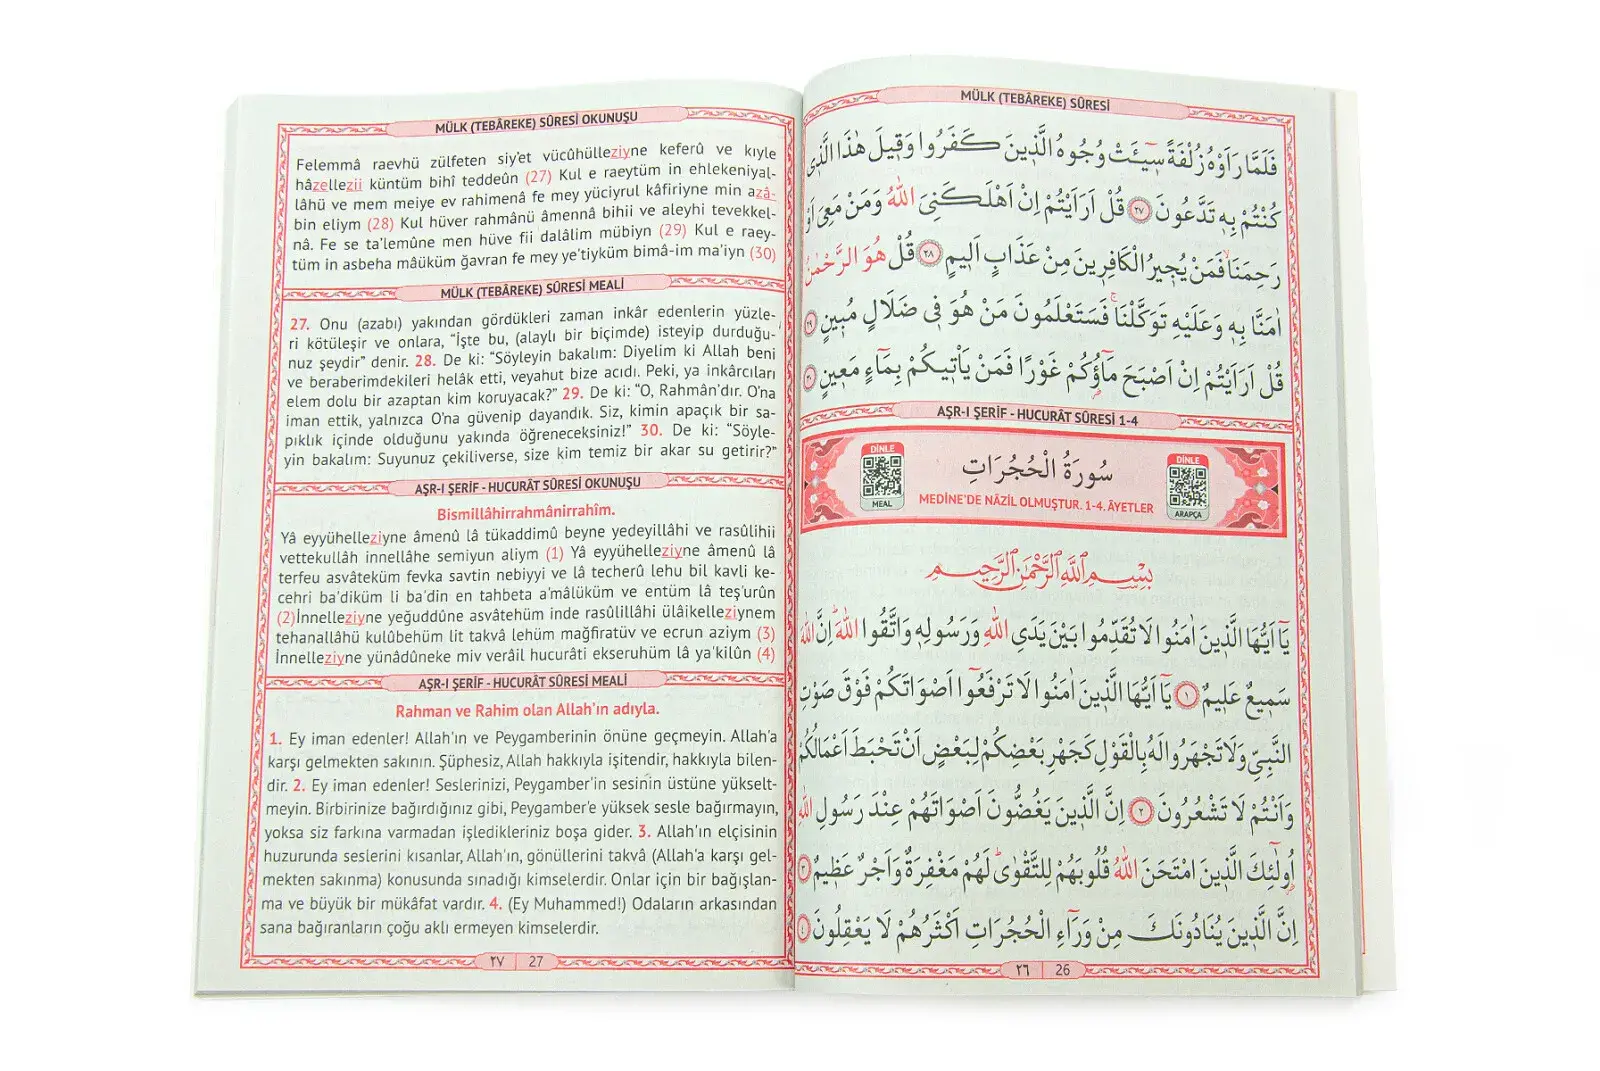 MÜLK (TEBÂREKE) SÛRESİ
فَلَمَّا رَاَوْهُ زُلْفَةً سٖٓيـَٔتْ وُجُوهُ الَّذٖينَ كَفَرُوا وَقٖيلَ هٰذَا الَّذٖى
كُنْتُمْ بِهٖ تَدَّعُونَ ﴿٢٧﴾ قُلْ اَرَاَيْتُمْ اِنْ اَهْلَكَنِىَ اللّٰهُ وَمَنْ مَعِىَ اَوْ
رَحِمَنَاۙ فَمَنْ يُجٖيرُ الْكَافِرٖينَ مِنْ عَذَابٍ اَلٖيمٍ ﴿٢٨﴾ قُلْ هُوَ الرَّحْمٰنُ
اٰمَنَّا بِهٖ وَعَلَيْهِ تَوَكَّلْنَاۚ فَسَتَعْلَمُونَ مَنْ هُوَ فٖى ضَلَالٍ مُبٖينٍ ﴿٢٩﴾
قُلْ اَرَاَيْتُمْ اِنْ اَصْبَحَ مَٓاؤُ۬كُمْ غَوْرًا فَمَنْ يَأْتٖيكُمْ بِمَٓاءٍ مَعٖينٍ ﴿٣٠﴾
AŞR-I ŞERİF - HUCURÂT SÛRESİ 1-4
DİNLE
MEAL
سُورَةُ الْحُجُرَاتِ
MEDİNE'DE NÂZİL OLMUŞTUR. 1-4. ÂYETLER
DİNLE
ARAPÇA
بِسْمِ اللّٰهِ الرَّحْمٰنِ الرَّحٖيمِ
يَٓا اَيُّهَا الَّذٖينَ اٰمَنُوا لَا تُقَدِّمُوا بَيْنَ يَدَىِ اللّٰهِ وَرَسُولِهٖ وَاتَّقُوا اللّٰهَؕ اِنَّ اللّٰهَ
سَمٖيعٌ عَلٖيمٌ ﴿١﴾ يَٓا اَيُّهَا الَّذٖينَ اٰمَنُوا لَا تَرْفَعُٓوا اَصْوَاتَكُمْ فَوْقَ صَوْتِ
النَّبِىِّ وَلَا تَجْهَرُوا لَهُ بِالْقَوْلِ كَجَهْرِ بَعْضِكُمْ لِبَعْضٍ اَنْ تَحْبَطَ اَعْمَالُكُمْ
وَاَنْتُمْ لَا تَشْعُرُونَ ﴿٢﴾ اِنَّ الَّذٖينَ يَغُضُّونَ اَصْوَاتَهُمْ عِنْدَ رَسُولِ اللّٰهِ
اُو۬لٰٓئِكَ الَّذٖينَ امْتَحَنَ اللّٰهُ قُلُوبَهُمْ لِلتَّقْوٰىؕ لَهُمْ مَغْفِرَةٌ وَاَجْرٌ عَظٖيمٌ ﴿٣﴾
اِنَّ الَّذٖينَ يُنَادُونَكَ مِنْ وَرَٓاءِ الْحُجُرَاتِ اَكْثَرُهُمْ لَا يَعْقِلُونَ ﴿٤﴾
٢٦ 26
MÜLK (TEBÂREKE) SÛRESİ OKUNUŞU
Felemmâ raevhü zülfeten siy'et vücûhülleziyne keferû ve kıyle
hâzellezii küntüm bihî teddeûn (27) Kul e raeytüm in ehlekeniyal-
lâhü ve mem meiye ev rahimenâ fe mey yüciyrul kâfiriyne min azâ-
bin eliym (28) Kul hüver rahmânü âmennâ bihii ve aleyhi tevekkel-
nâ. Fe se ta'lemûne men hüve fii dalâlim mübiyn (29) Kul e raey-
tüm in asbeha mâüküm ğavran fe mey ye'tiyküm bimâ-im ma'iyn (30)
MÜLK (TEBÂREKE) SÛRESİ MEALİ
27. Onu (azabı) yakından gördükleri zaman inkâr edenlerin yüzle-
ri kötüleşir ve onlara, “İşte bu, (alaylı bir biçimde) isteyip durduğu-
nuz şeydir” denir. 28. De ki: “Söyleyin bakalım: Diyelim ki Allah beni
ve beraberimdekileri helâk etti, veyahut bize acıdı. Peki, ya inkârcıları
elem dolu bir azaptan kim koruyacak?” 29. De ki: “O, Rahmân'dır. O'na
iman ettik, yalnızca O'na güvenip dayandık. Siz, kimin apaçık bir sa-
pıklık içinde olduğunu yakında öğreneceksiniz!” 30. De ki: “Söyle-
yin bakalım: Suyunuz çekiliverse, size kim temiz bir akar su getirir?”
AŞR-I ŞERİF - HUCURÂT SÛRESİ OKUNUŞU
Bismillâhirrahmânirrahîm.
Yâ eyyühelleziyne âmenû lâ tükaddimû beyne yedeyillâhi ve rasûlihii
vettekullâh innellâhe semiyun aliym (1) Yâ eyyühelleziyne âmenû lâ
terfeu asvâteküm fevka savtin nebiyyi ve lâ techerû lehu bil kavli ke-
cehri ba'diküm li ba'din en tahbeta a'mâlüküm ve entüm lâ teş'urûn
(2)İnnelleziyne yeğuddûne asvâtehüm inde rasûlillâhi ülâikelleziynem
tehanallâhü kulûbehüm lit takvâ lehüm mağfiratüv ve ecrun aziym (3)
İnnelleziyne yünâdûneke miv verâil hucurâti ekseruhüm lâ ya'kilûn (4)
AŞR-I ŞERİF - HUCURÂT SÛRESİ MEALİ
Rahman ve Rahim olan Allah'ın adıyla.
1. Ey iman edenler! Allah'ın ve Peygamberinin önüne geçmeyin. Allah'a
karşı gelmekten sakının. Şüphesiz, Allah hakkıyla işitendir, hakkıyla bilen-
dir. 2. Ey iman edenler! Seslerinizi, Peygamber'in sesinin üstüne yükselt-
meyin. Birbirinize bağırdığınız gibi, Peygamber'e yüksek sesle bağırmayın,
yoksa siz farkına varmadan işledikleriniz boşa gider. 3. Allah'ın elçisinin
huzurunda seslerini kısanlar, Allah'ın, gönüllerini takvâ (Allah'a karşı gel-
mekten sakınma) konusunda sınadığı kimselerdir. Onlar için bir bağışlan-
ma ve büyük bir mükâfat vardır. 4. (Ey Muhammed!) Odaların arkasından
sana bağıranların çoğu aklı ermeyen kimselerdir.
٢٧ 27